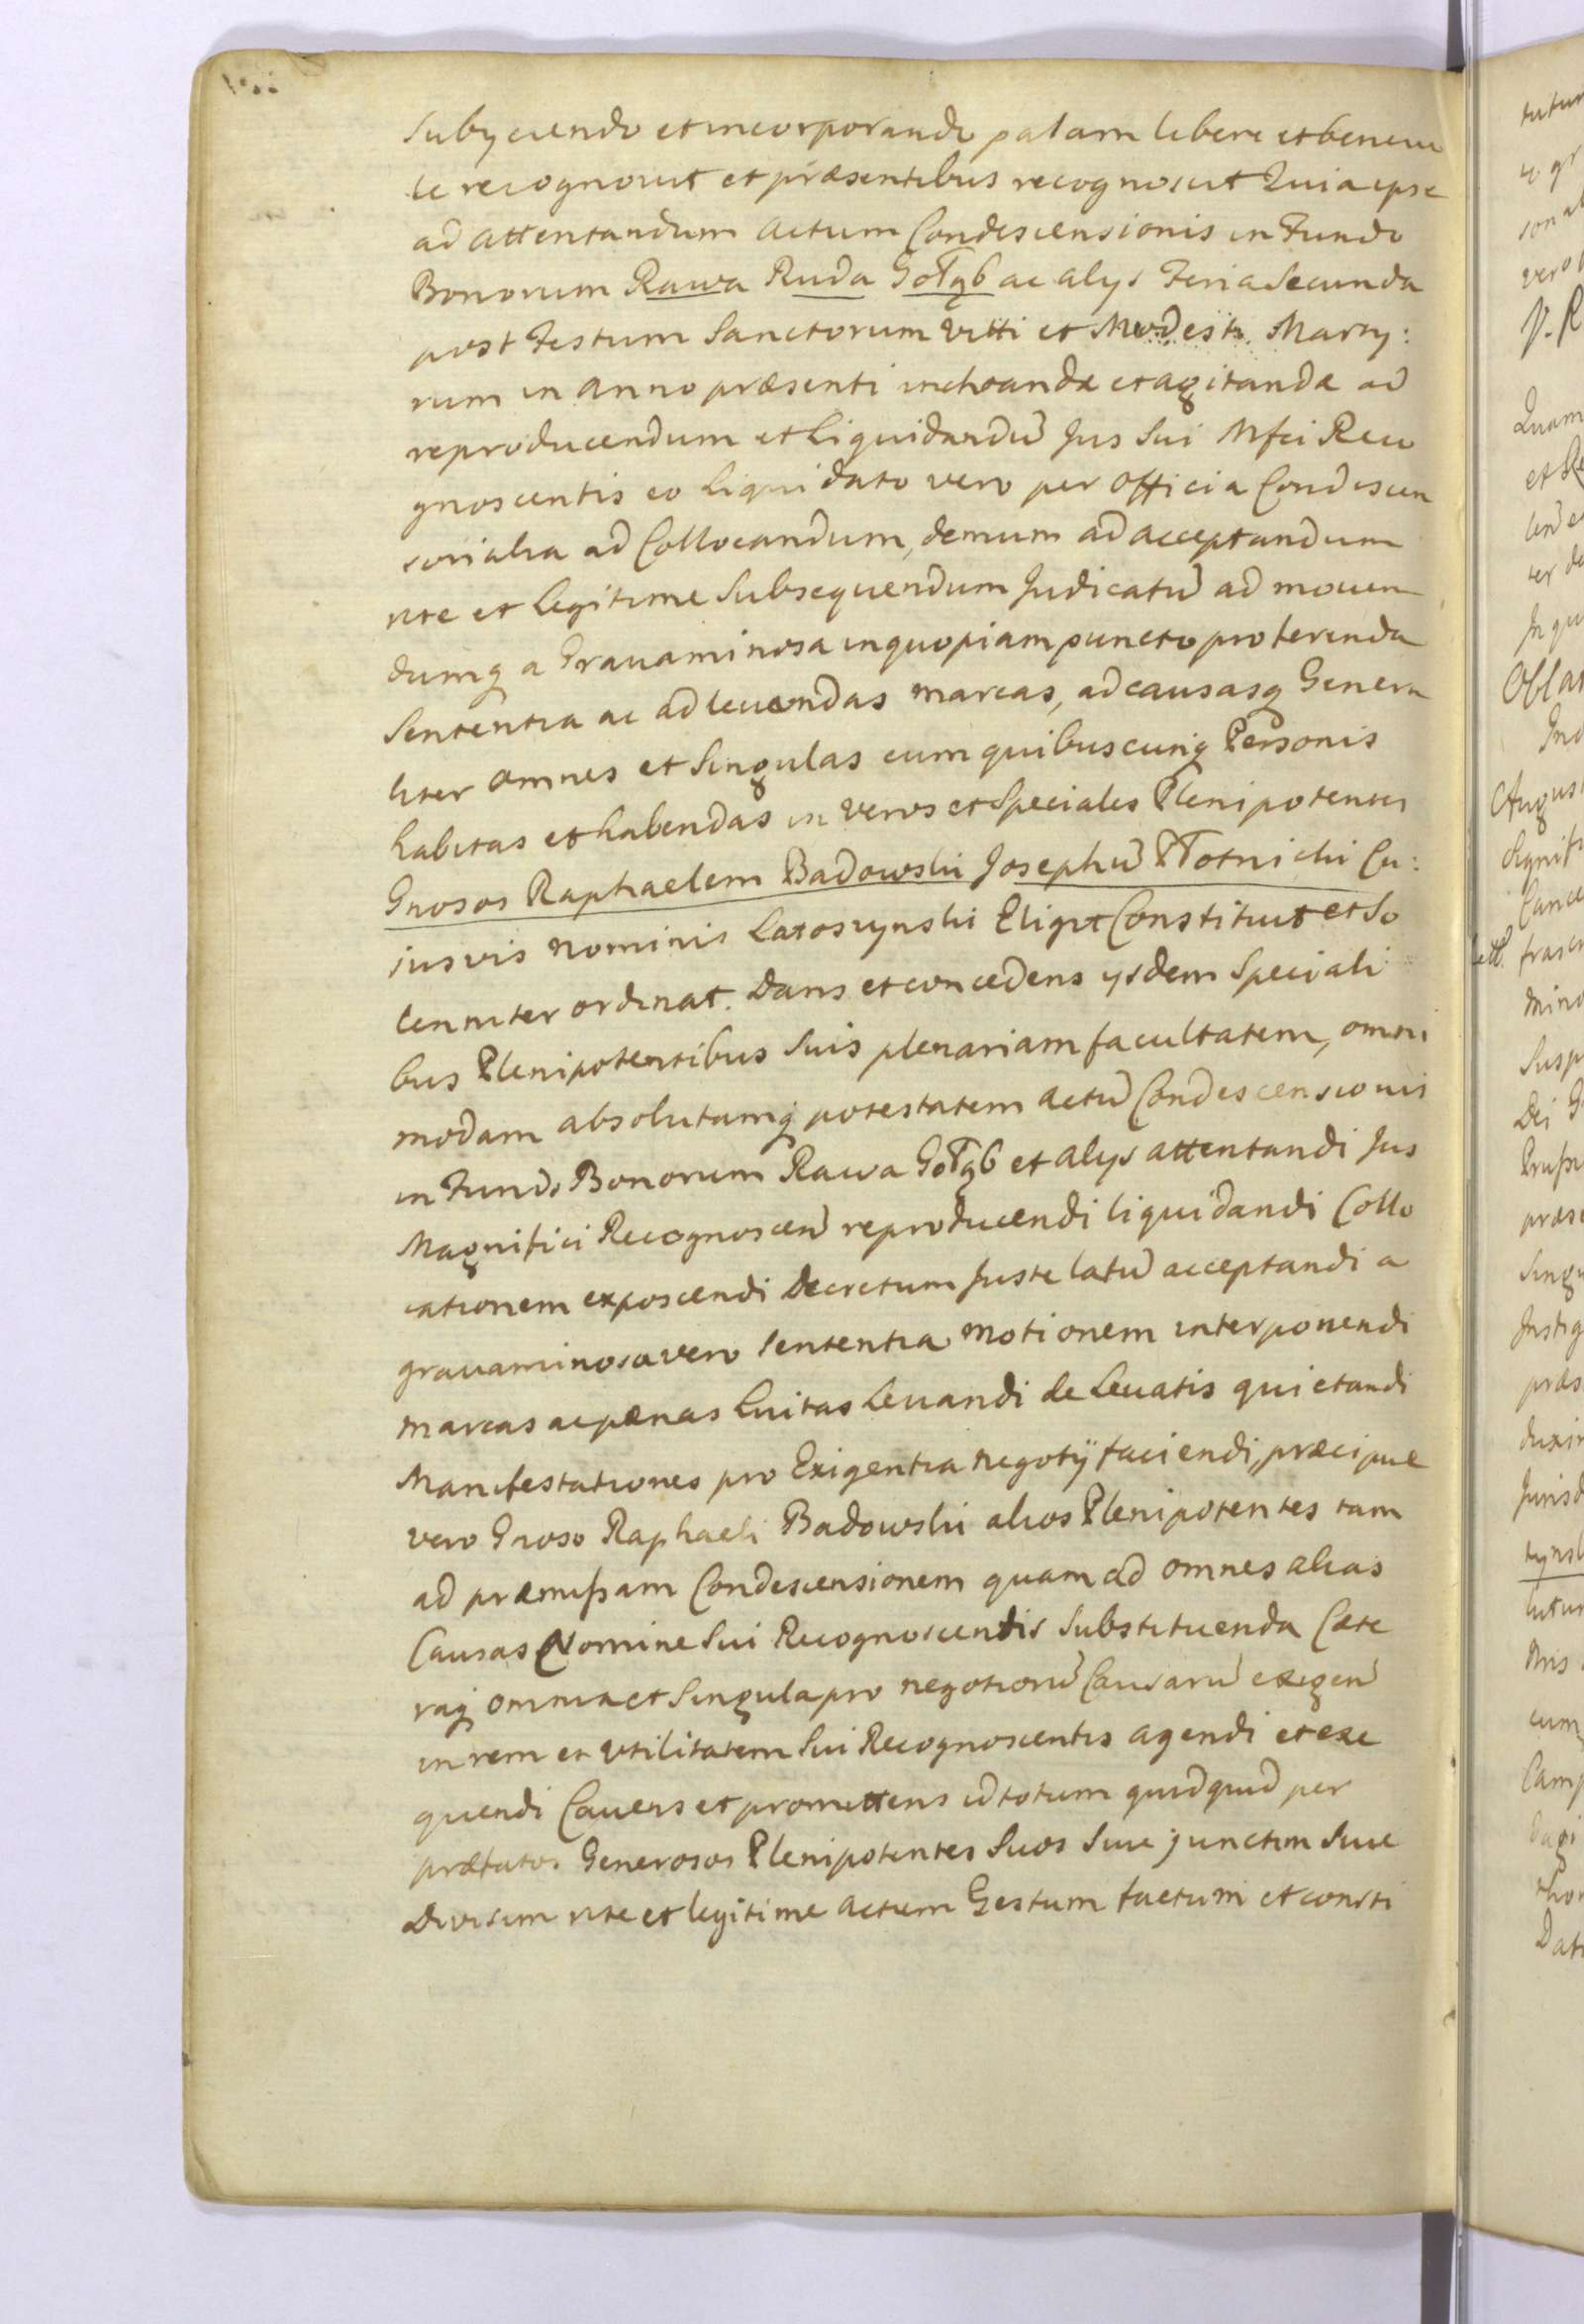 Subÿciendo et incorporando palam libere et benevo
le recognovit et præsentibus recognoscit Quia ipse
ad attentandum actum Condescensionis in Fundo
Bonorum Rawa Ruda Gołąb ac alÿs Feria Secunda
post Festum Sanctorum Vitti et Modesti Marty:
rum in anno præsenti inchoandæ et agitandæ ad
reproducendum et Liquidandū Jus Sui Mfci Reco
gnoscentis eo Liquidato vero per Officia Condescen
sorialia ad Collocandum, demum ad acceptandum
rite et legitime Subsequendum Judicatū ad moven
dumq a Gravaminosa in quopiam puncto proferenda
Sententia ac ad levendas marcas, ad causasq Genera
liter omnes et Singulas cum quibuscunq Personis
habitas et habendas in veros et Speciales Plenipotentes
Gnosos Raphaelem Badowski Josephū Płotnicki Cu:
iusvis nominis Latoszynski Eligit Constituit et So
lenniter ordinat. Dans et concedens ysdem Speciali
bus Plenipotentibus Suis plenariam facultatem, omni
modam absolutamq potestatem actū Condescensionis
in Fundo Bonorum Rawa Gołąb et alÿs attentandi Jus
Magnifici Recognoscen reproducendi liquidandi Collo
cationem exposcendi Decretum Juste latū acceptandi a
gravaminosa vero Sententia Motionem interponendi
marcas ac pænas Luitas Levandi de Levatis quietandi
Manifestationes pro Exigentia negotÿ faciendi, præcipue
vero Gnoso Raphaeli Badowski alios Plenipotentes tam
ad præmissam Condescensionem quam ad omnes alias
Causas Nomine Sui Recognoscentis Substituenda Cæte
raq omnia et Singula pro negotiorū Causarū exigen
in rem et utilitatem Sui Recognoscentis agendi et exe
quendi Cavens et promittens id totum quidquid per
præfatos Generosos Plenipotentes Suos Sive junctim Sive
Divisim rite et legitime actum Gestum factum et consti